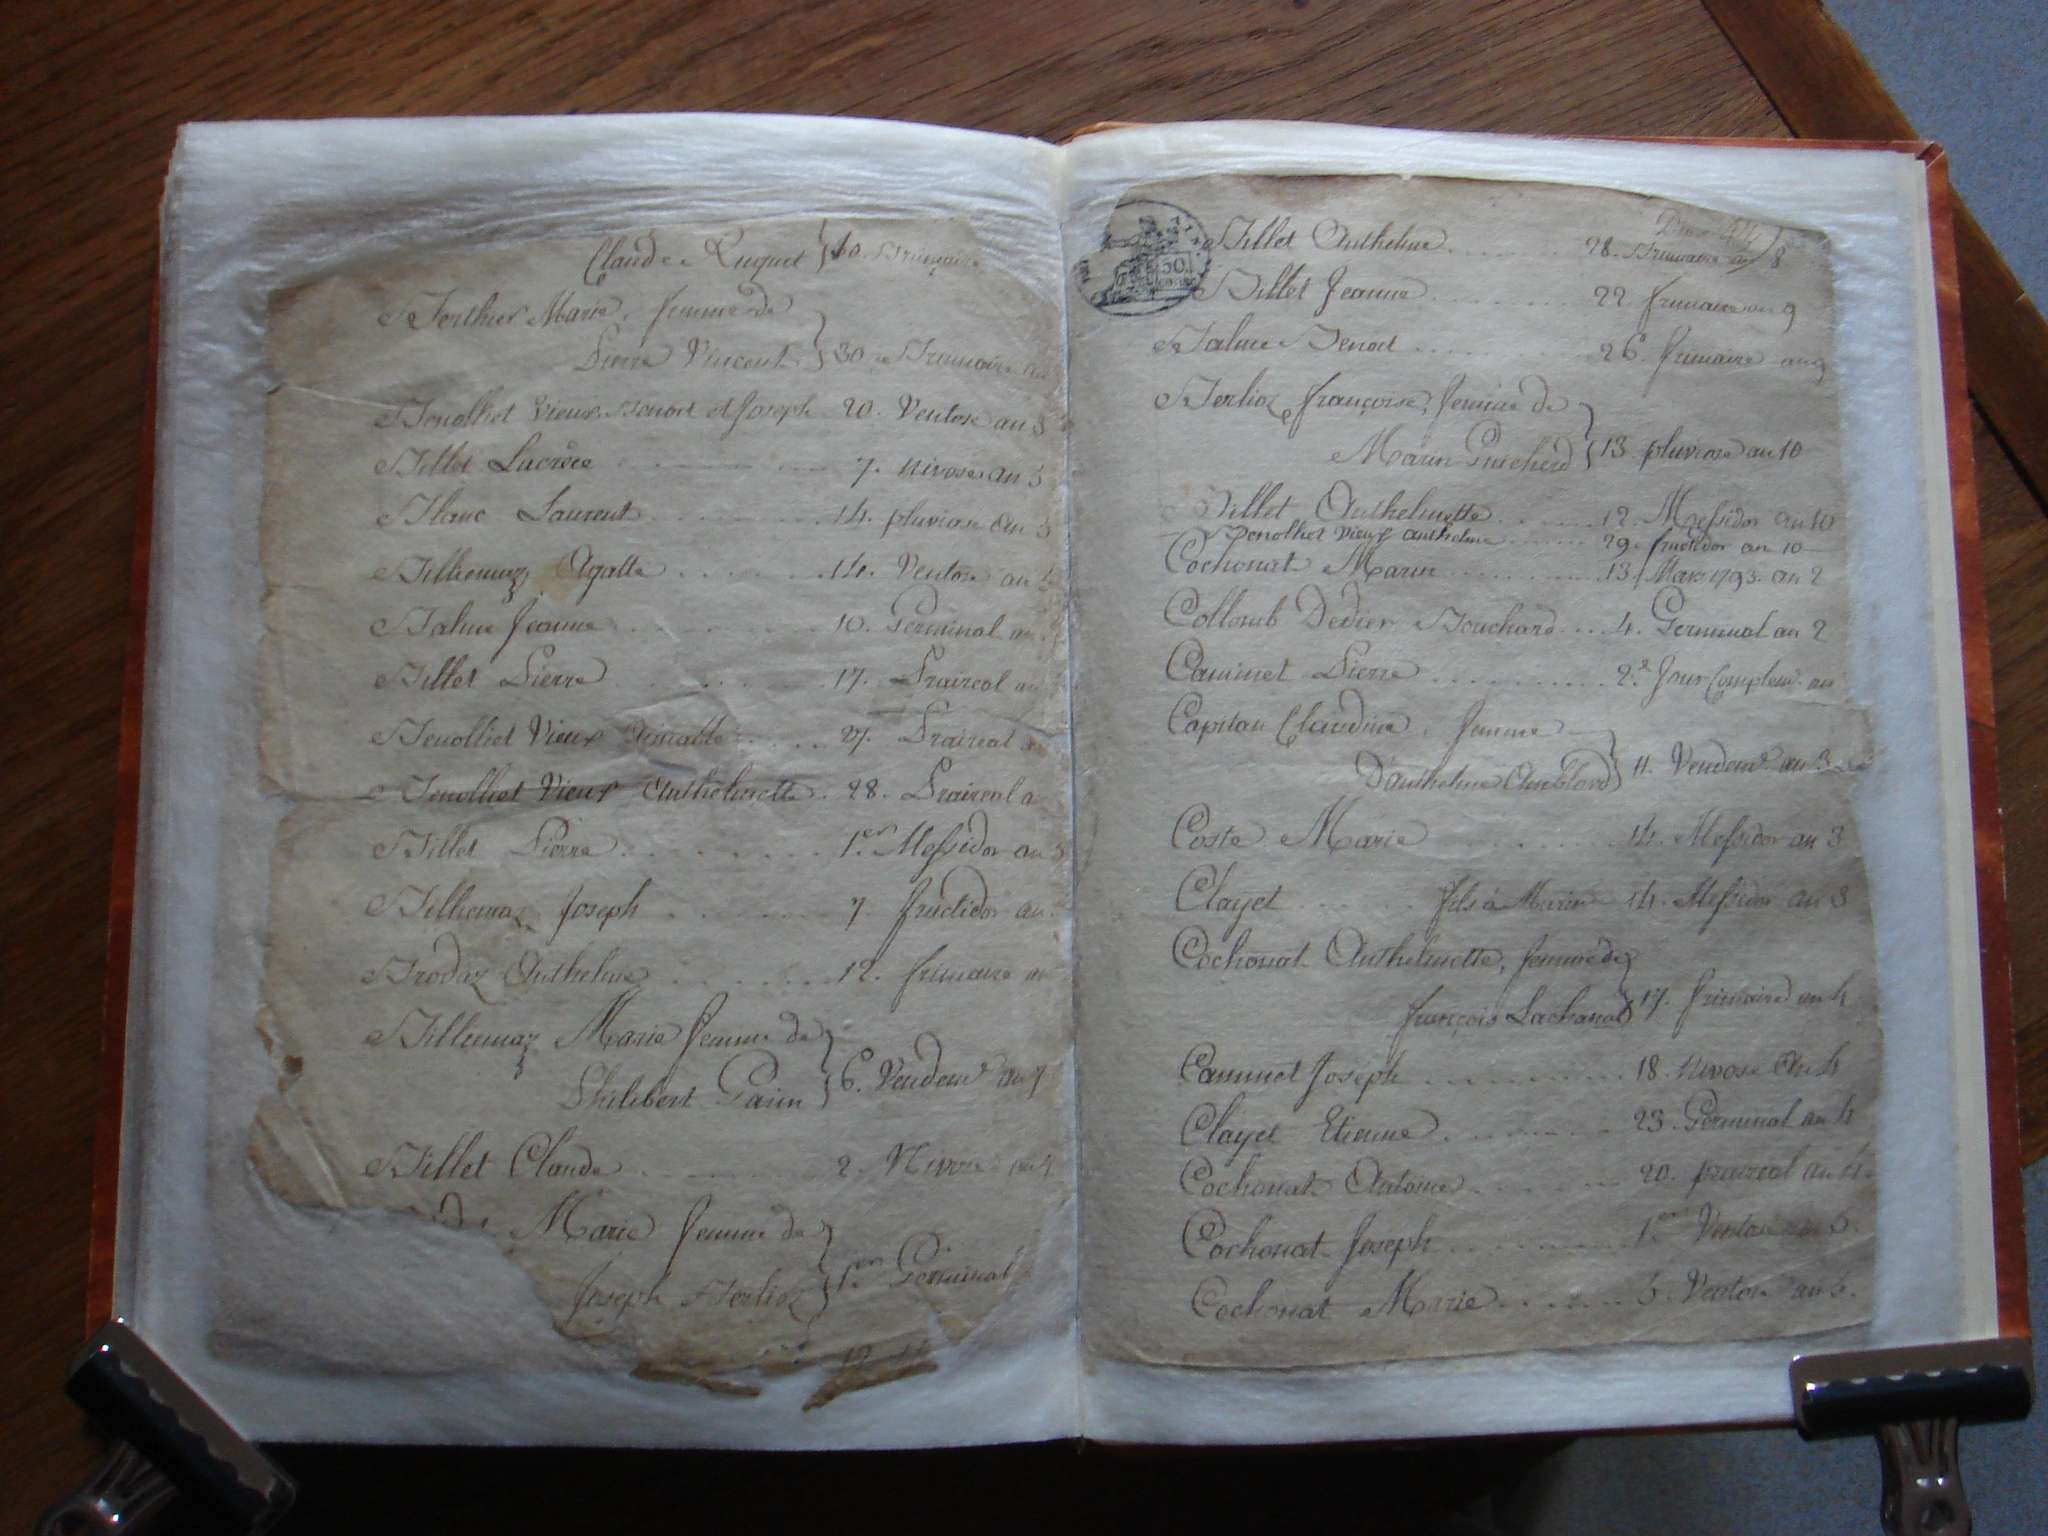 Claude Luquet } 10. Brumaire
Berthier Marie, femme de
Pierre Vincent } 30. Brumaire an
Benolliet Vieux Benoit et Joseph 20. Ventose an 3
Billet Lucrèce 7. Nivose an 3
Blanc Laurent 14. pluviose an 3
Billiemaz Agatte 14. Ventose an
Balme Jeanne 10. Germinal an
Billet Pierre 17. Prairial an
Benolliet Vieux 27. Prairial
Benolliet Vieux Anthelmette 28. Prairial a
Billet Pierre 1.er Messidor an 3
Billiemaz Joseph 7. fructidor an
Brodaz Anthelme 12. frimaire an
Billiemaz Marie femme de
Philibert Garin } 6. Vendem.e an 4
Billet Claude 2. Nivose an 4
Marie femme de
Joseph Berlioz } 1.er Germinal
12
Billet Anthelme 28. Brumaire an 8
50
Billet Jeanne 22 frimaire an 9
Balme Benoit 26 frimaire an 9
Berlioz françoise, femme de
Marin Guicherd } 13. pluviose an 10
Billet Anthelmette 12. Messidor an 10
Benolliet Vieux anthelme 29. fructidor an 10
Cochonat Marin 13. Mars 1793. an 2
Collomb Dedier Bouchard 4. Germinal an 2
Caminet Pierre 2.e Jour Complem.e an
Capitan Claudine, femme
D'anthelme Amblard } 11. Vendem.e an 3
Coste Marie 14. Messidor an 3
Clayet fils à Marin 14. Messidor an 3
Cochonat Anthelmette, femme de
françois Lachanal } 17. frimaire an 4
Caminet Joseph 18. Nivose an 4
Clayet Etienne 23. Germinal an 4
Cochonat Antoine 20. prairial an 4.
Cochonat Joseph 1.er Ventose an 5.
Cochonat Marie 5. Ventose an 5.